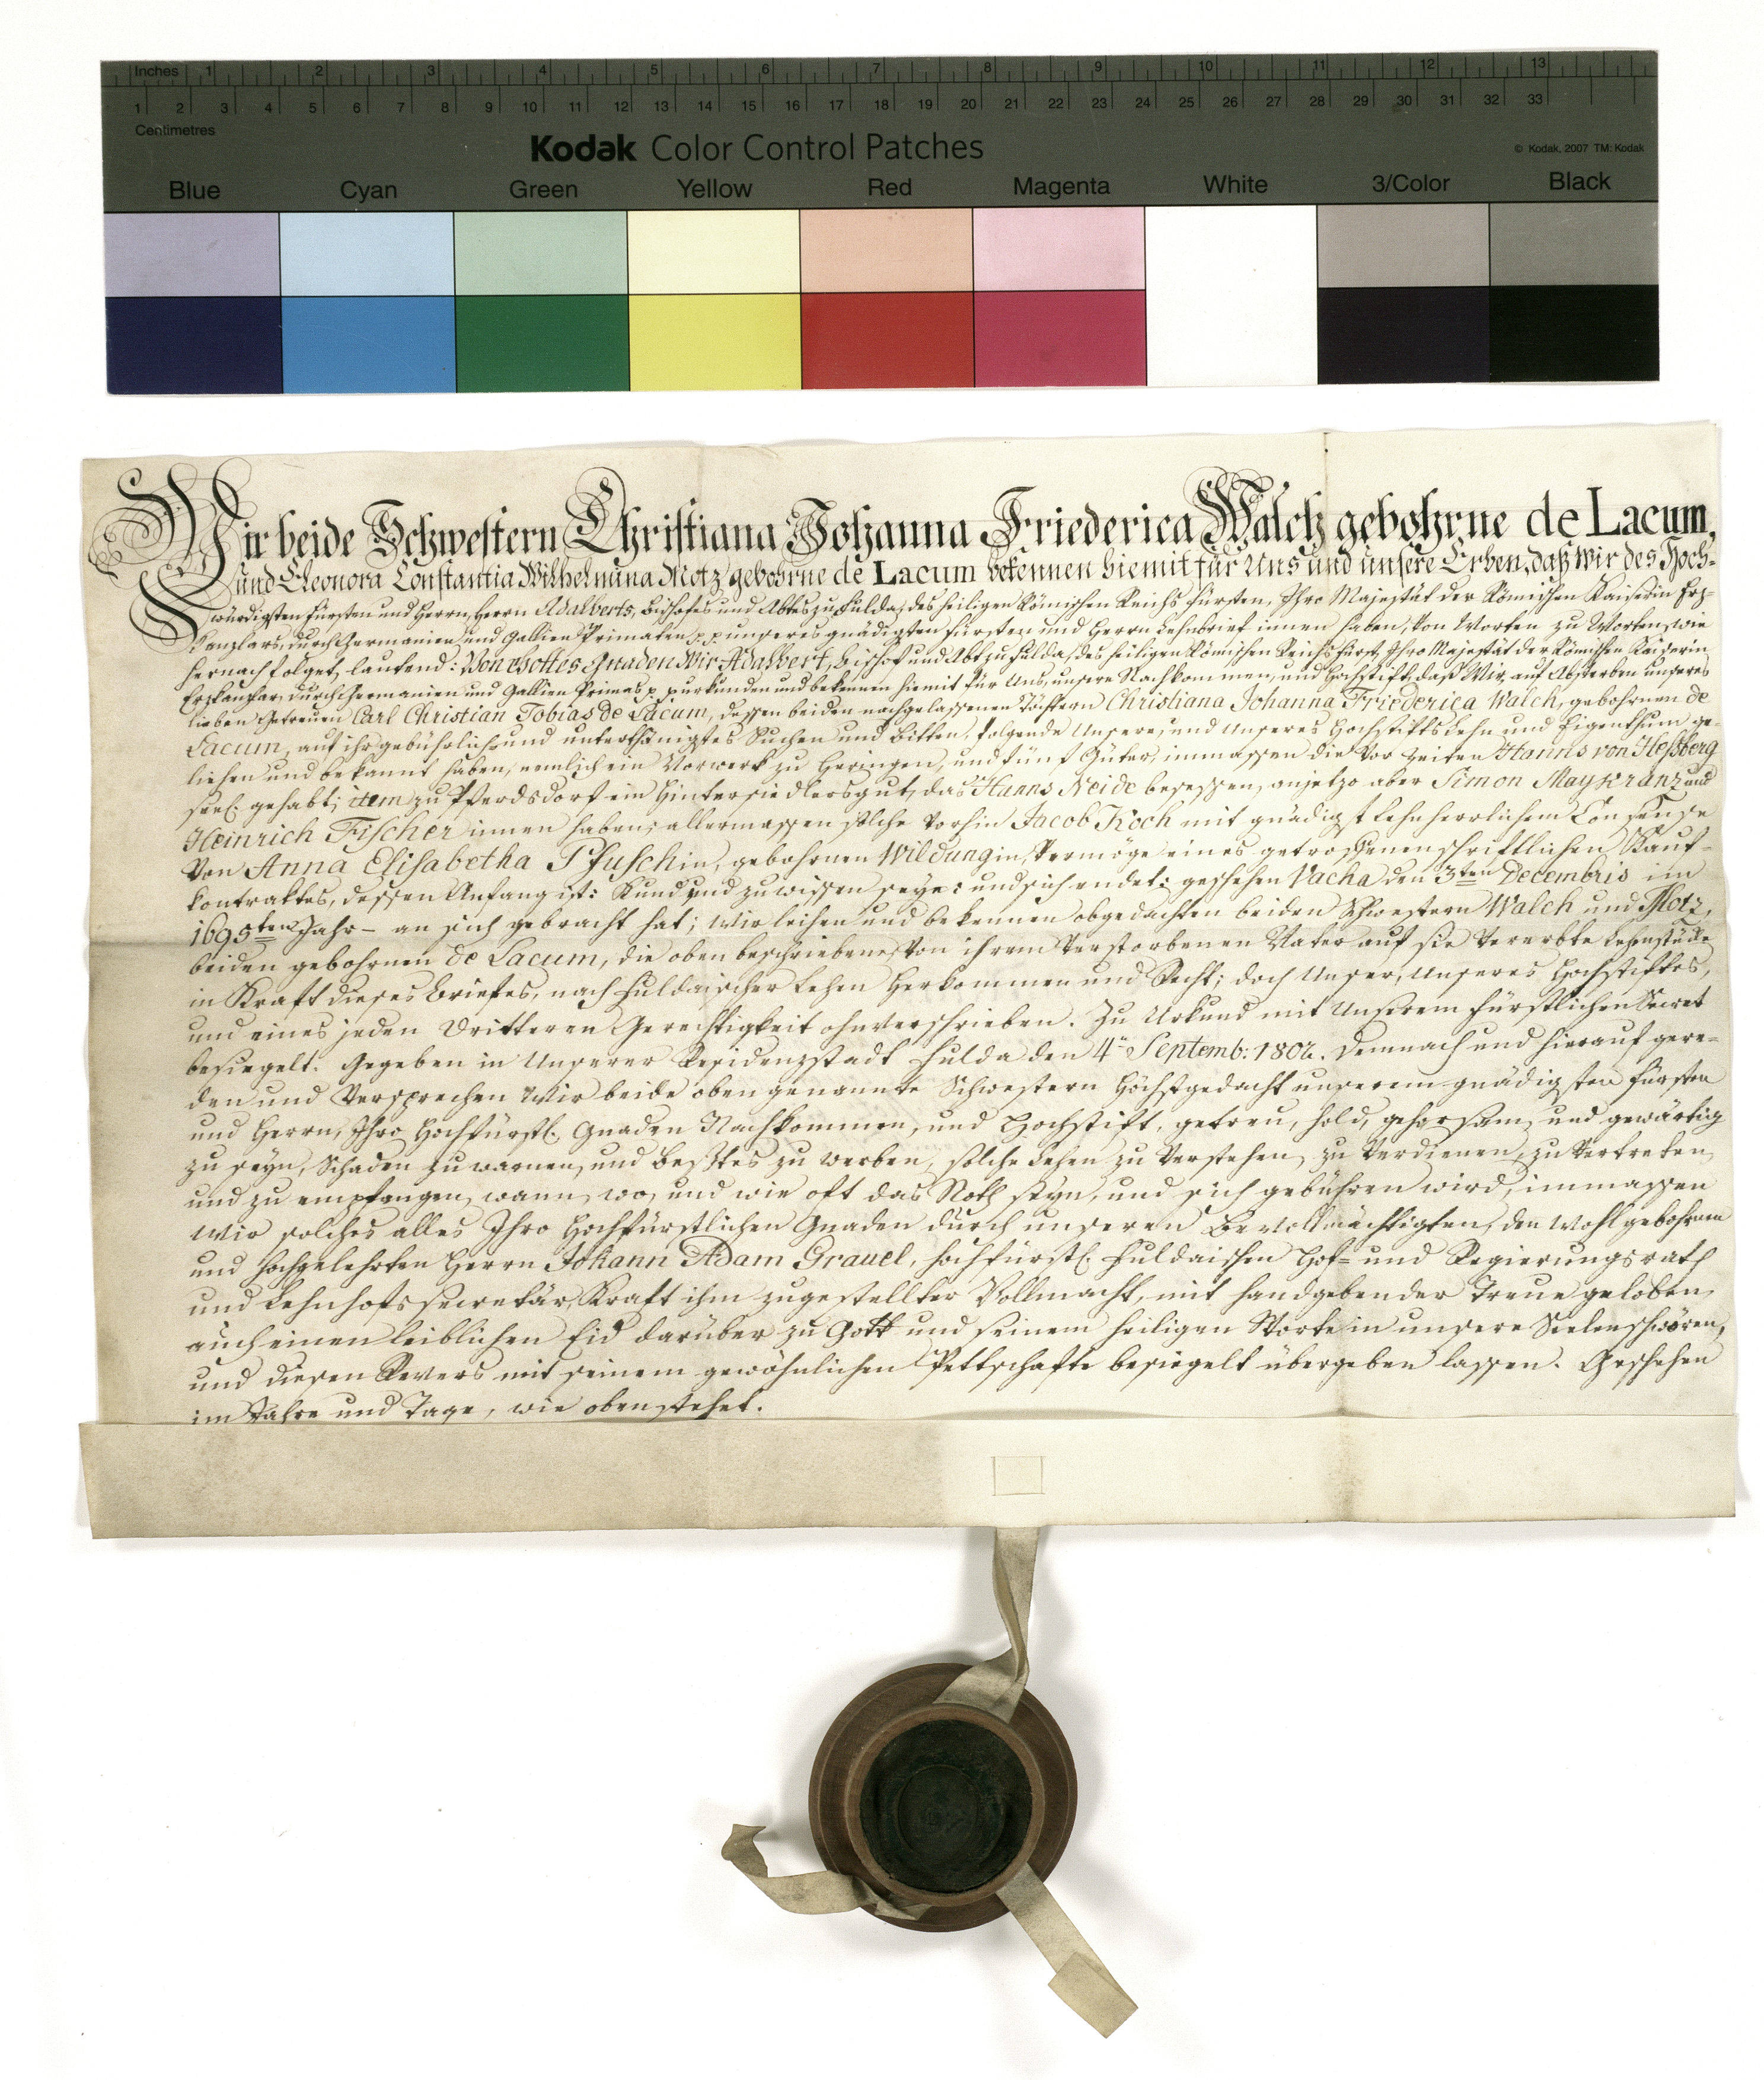 Inches 1 2 3 4 5 6 7 8 9 10 11 12 13
1 2 3 4 5 6 7 8 9 10 11 12 13 14 15 16 17 18 19 20 21 22 23 24 25 26 27 28 29 30 31 32 33
Centimetres
Kodak Color Control Patches © Kodak, 2007 TM: Kodak
Blue Cyan Green Yellow Red Magenta White 3/Color Black
Wir beide Schwestern Christiana Johanna Friederica Walch gebohrne de Lacum,
und Eleonora Constantia Wilhelmina Motz gebohrne de Lacum bekennen hiemit für Uns und unsere Erben, daß Wir des Hoch-
würdigsten Fürsten und Herrn, Herrn Adalberts, Bischofes und Abtes zu Fulda, des heiligen Römischen Reichs Fürsten, Ihro Majestät der Römischen Kaiserin Erz-
Kanzlers, durch Germanien und Gallien Primaten p. p. unseres gnädigsten Fürsten und Herrn Lehnbrief innen haben, von Worten zu Worten, wie
hernach folget, lautend: Von Gottes Gnaden Wir Adalbert, Bischof und Abt zu Fulda, des heiligen Römischen Reichs Fürst, Ihro Majestät der Römischen Kaiserin
Erzkanzler, durch Germanien und Gallien Primas p. p. urkunden und bekennen hiemit für Uns, unsere Nachkommen, und Hochstift, daß Wir, auf Absterben unseres
lieben Getreuen Carl Christian Tobias de Lacum, dessen beiden nachgelassenen Töchtern Christiana Johanna Friederica Walch, gebohrnen de
Lacum, auf ihr gebührlich- und unterthänigstes Suchen und Bitten, folgende Unsere, und Unseres Hochstifts Lehn und Eigenthum ge-
liehen und bekannt haben, nemlich ein Vorwerk zu Heringen, und fünf Güter, immassen die vor Zeiten Hanns von Heßberg
seel. gehabt; item zu Pferdsdorf ein Hintersiedlersgut, das Hanns Neide besessen, anjetzo aber Simon Maykranz und
Heinrich Fischer innen haben; allermassen solche vorhin Jacob Koch mit gnädigst Lehnherrlichem Consense
von Anna Elisabetha Pfuschin, gebohrnen Wildungin, vermöge eines getroffenen schriftlichen Kauf-
kontraktes, dessen Anfang ist: Kund und zu wissen seye: und sich endet: geschehen Vacha den 3ten Decembris im
1695ten Jahr - an sich gebracht hat; Wir leihen und bekennen obgedachten beiden Schwestern Walch und Motz,
beiden gebohrnen de Lacum, die oben beschriebene, von ihrem verstorbenen Vater auf sie vererbte Lehenstücke
in Kraft dieses Briefes, nach Fuldaischer Lehen Herkommen und Recht; doch Unser, Unseres Hochstiftes,
und eines jeden Dritteren Gerechtigkeit ohnverschrieben. Zu Urkund mit Unserem Fürstlichen Secret
besiegelt. Gegeben in Unserer Residenzstadt Fulda den 4n Septemb: 1802. Demnach und hierauf gere-
den und versprechen Wir beide oben genannte Schwestern Höchstgedacht unserem gnädigsten Fürsten
und Herrn, Ihro Hochfürstl. Gnaden Nachkommen, und Hochstift, getreu, hold, gehorsam, und gewärtig
zu seyn, Schaden zu warnen, und Bestes zu werben, solche Lehen zu verstehen, zu verdienen, zu vertreten,
und zu empfangen, wann, wo, und wie oft das Noth seyn, und sich gebühren wird, immassen
wir solches alles Ihro Hochfürstlichen Gnaden durch unseren Bevollmächtigten, den Wohlgebohrnen
und Hochgelehrten Herrn Johann Adam Grauel, Hochfürstl. Fuldaischen Hof- und Regierungsrath
und Lehnhofssecretär, Kraft ihm zugestellter Vollmacht, mit handgebender Treue geloben,
auch einen leiblichen Eid darüber zu Gott und seinem heiligen Worte in unsere Seelen schwören,
und diesen Revers mit seinem gewöhnlichen Pettschafte besiegelt übergeben lassen. Geschehen
im Jahre und Tage, wie oben stehet.